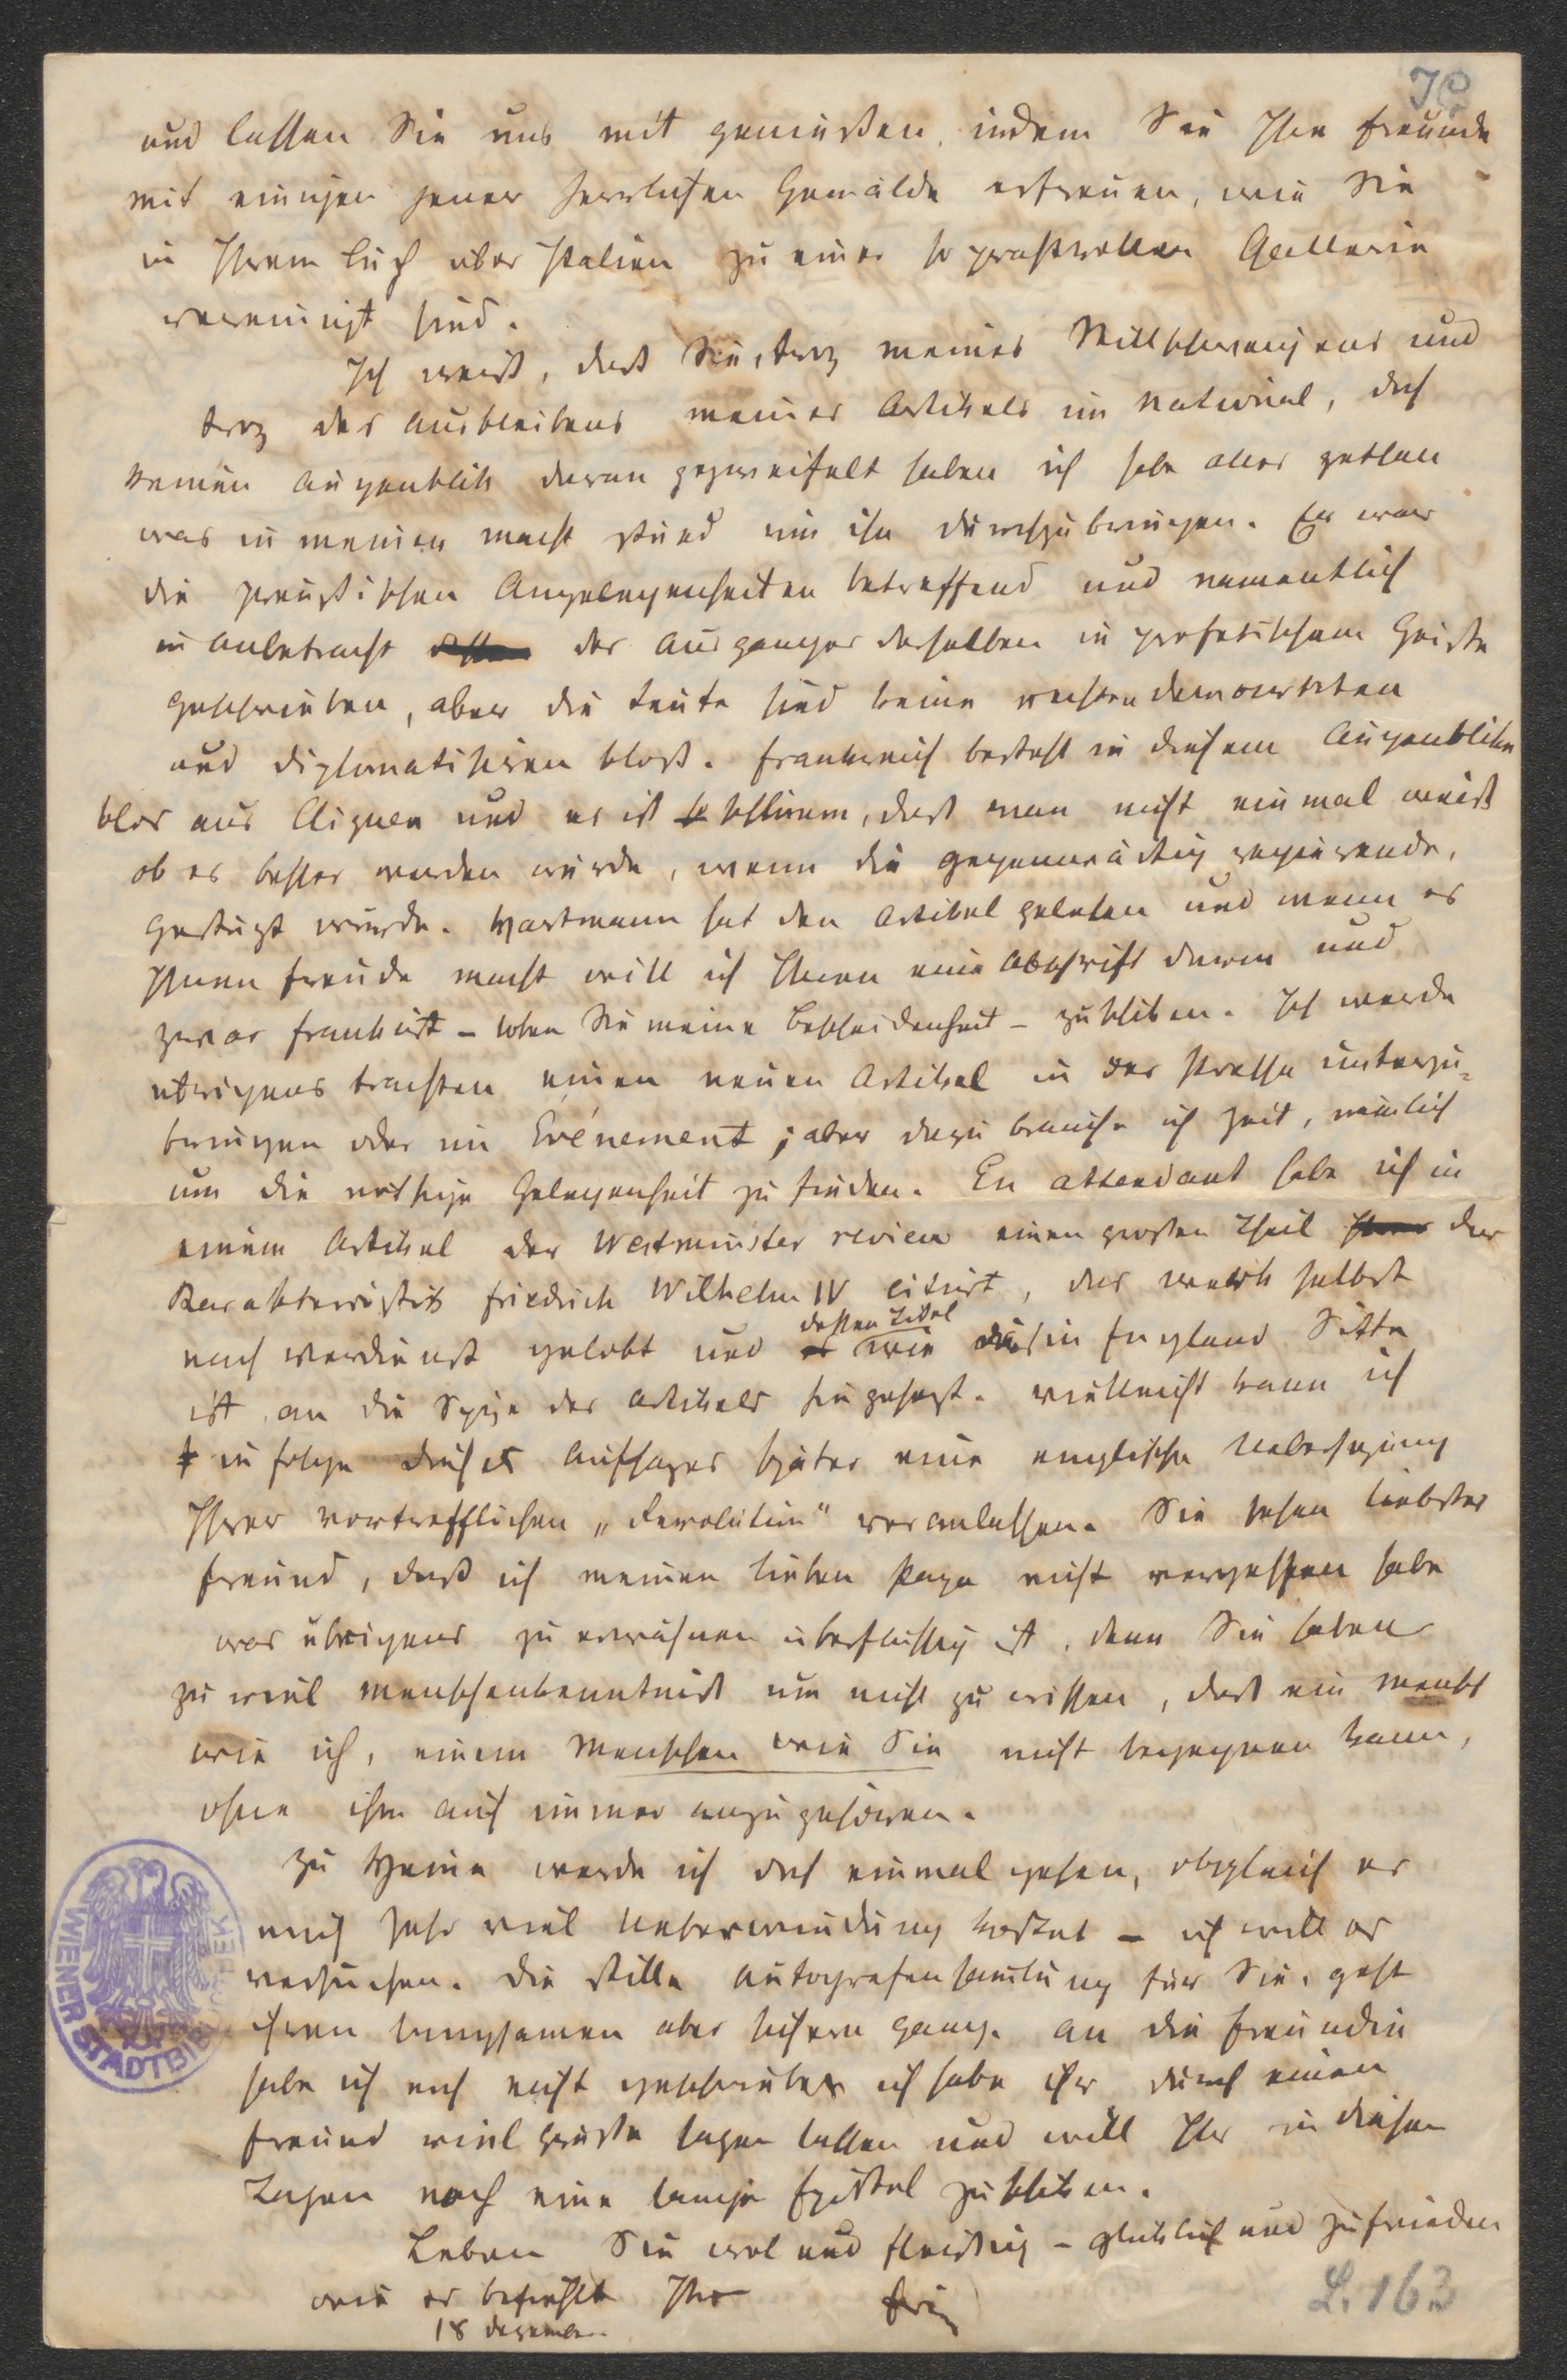 und lassen Sie uns mit genießen, indem Sie Ihre Freunde
mit einigen jener herrlichen Gemälde erfreuen, wie Sie
in Ihrem Buch über Italien zu einer so prachtvollen Gallerie
vereinigt sind.
Ich weiß, daß Sie, troz meines Stillschweigens und
troz des Ausbleibens meines Artikels im National, doch
keinen Augenblik daran gezweifelt haben ich habe alles gethan
was in meiner Macht stund um ihn durchzubringen. Er war
die preußischen Angelegenheiten betreffend und namentlich
in Anbetracht des Ausganges derselben in profetischem Geiste
geschrieben, aber die Leute sind keine rechten Demokraten
und diplomatisiren bloß. Frankreich besteht in diesem Augenblike
blos aus Cliquen und es ist schlimm, daß man nicht einmal weiß
ob es besser werden würde, wenn die gegenwärtig regierende,
gestürzt würde. Hartmann hat den Artikel gelesen und wenn es
Ihnen Freude macht will ich Ihnen eine Abschrift davon und
zwar frankirt – loben Sie meine Bescheidenheit – zuschiken. Ich werde
übrigens trachten einen neuen Artikel in der Presse unterzu=
bringen oder im Evénement; aber dazu brauche ich Zeit, nämlich
um die nöthige Gelegenheit zu finden. En attendant habe ich in
einem Artikel der Westminster review einen großen Theil der
Karakteristik Friedrich Wilhelm IV citirt, das Werk selbst
nach Verdienst gelobt und dessen Titel wie dies in England Sitte
ist an die Spize des Artikels hingesezt. Vielleicht kann ich
in Folge dieses Aufsazes später eine englische Uebersezung
Ihrer vortrefflichen „Revolution“ veranlassen. Sie sehen liebster
Freund, daß ich meinen lieben Papa nicht vergessen habe
was übrigens zu erwähnen überflüssig ist, denn Sie haben
zu viel Menschenkenntniß um nicht zu wissen, daß ein Mensch
wie ich, einem Menschen wie Sie nicht begegnen kann,
ohne ihm auf immer anzugehören.
Zu Heine werde ich doch einmal gehen, obgleich es
mich sehr viel Ueberwindung kostet – ich will es
versuchen. Die stille Autografensammlung für Sie, geht
ihren langsamen aber sichern Gang. An die Freundin
habe ich noch nicht geschrieben ich habe ihr durch einen
Freund viel Grüße sagen lassen und will Ihr in diesen
Tagen noch eine lange Epistel zuschiken.
Leben Sie wol und fleißig – glüklich und zufrieden
wie es befiehlt Ihr
18 Dezember.
L. 163
WIENER STADTBIBLIOTHEK